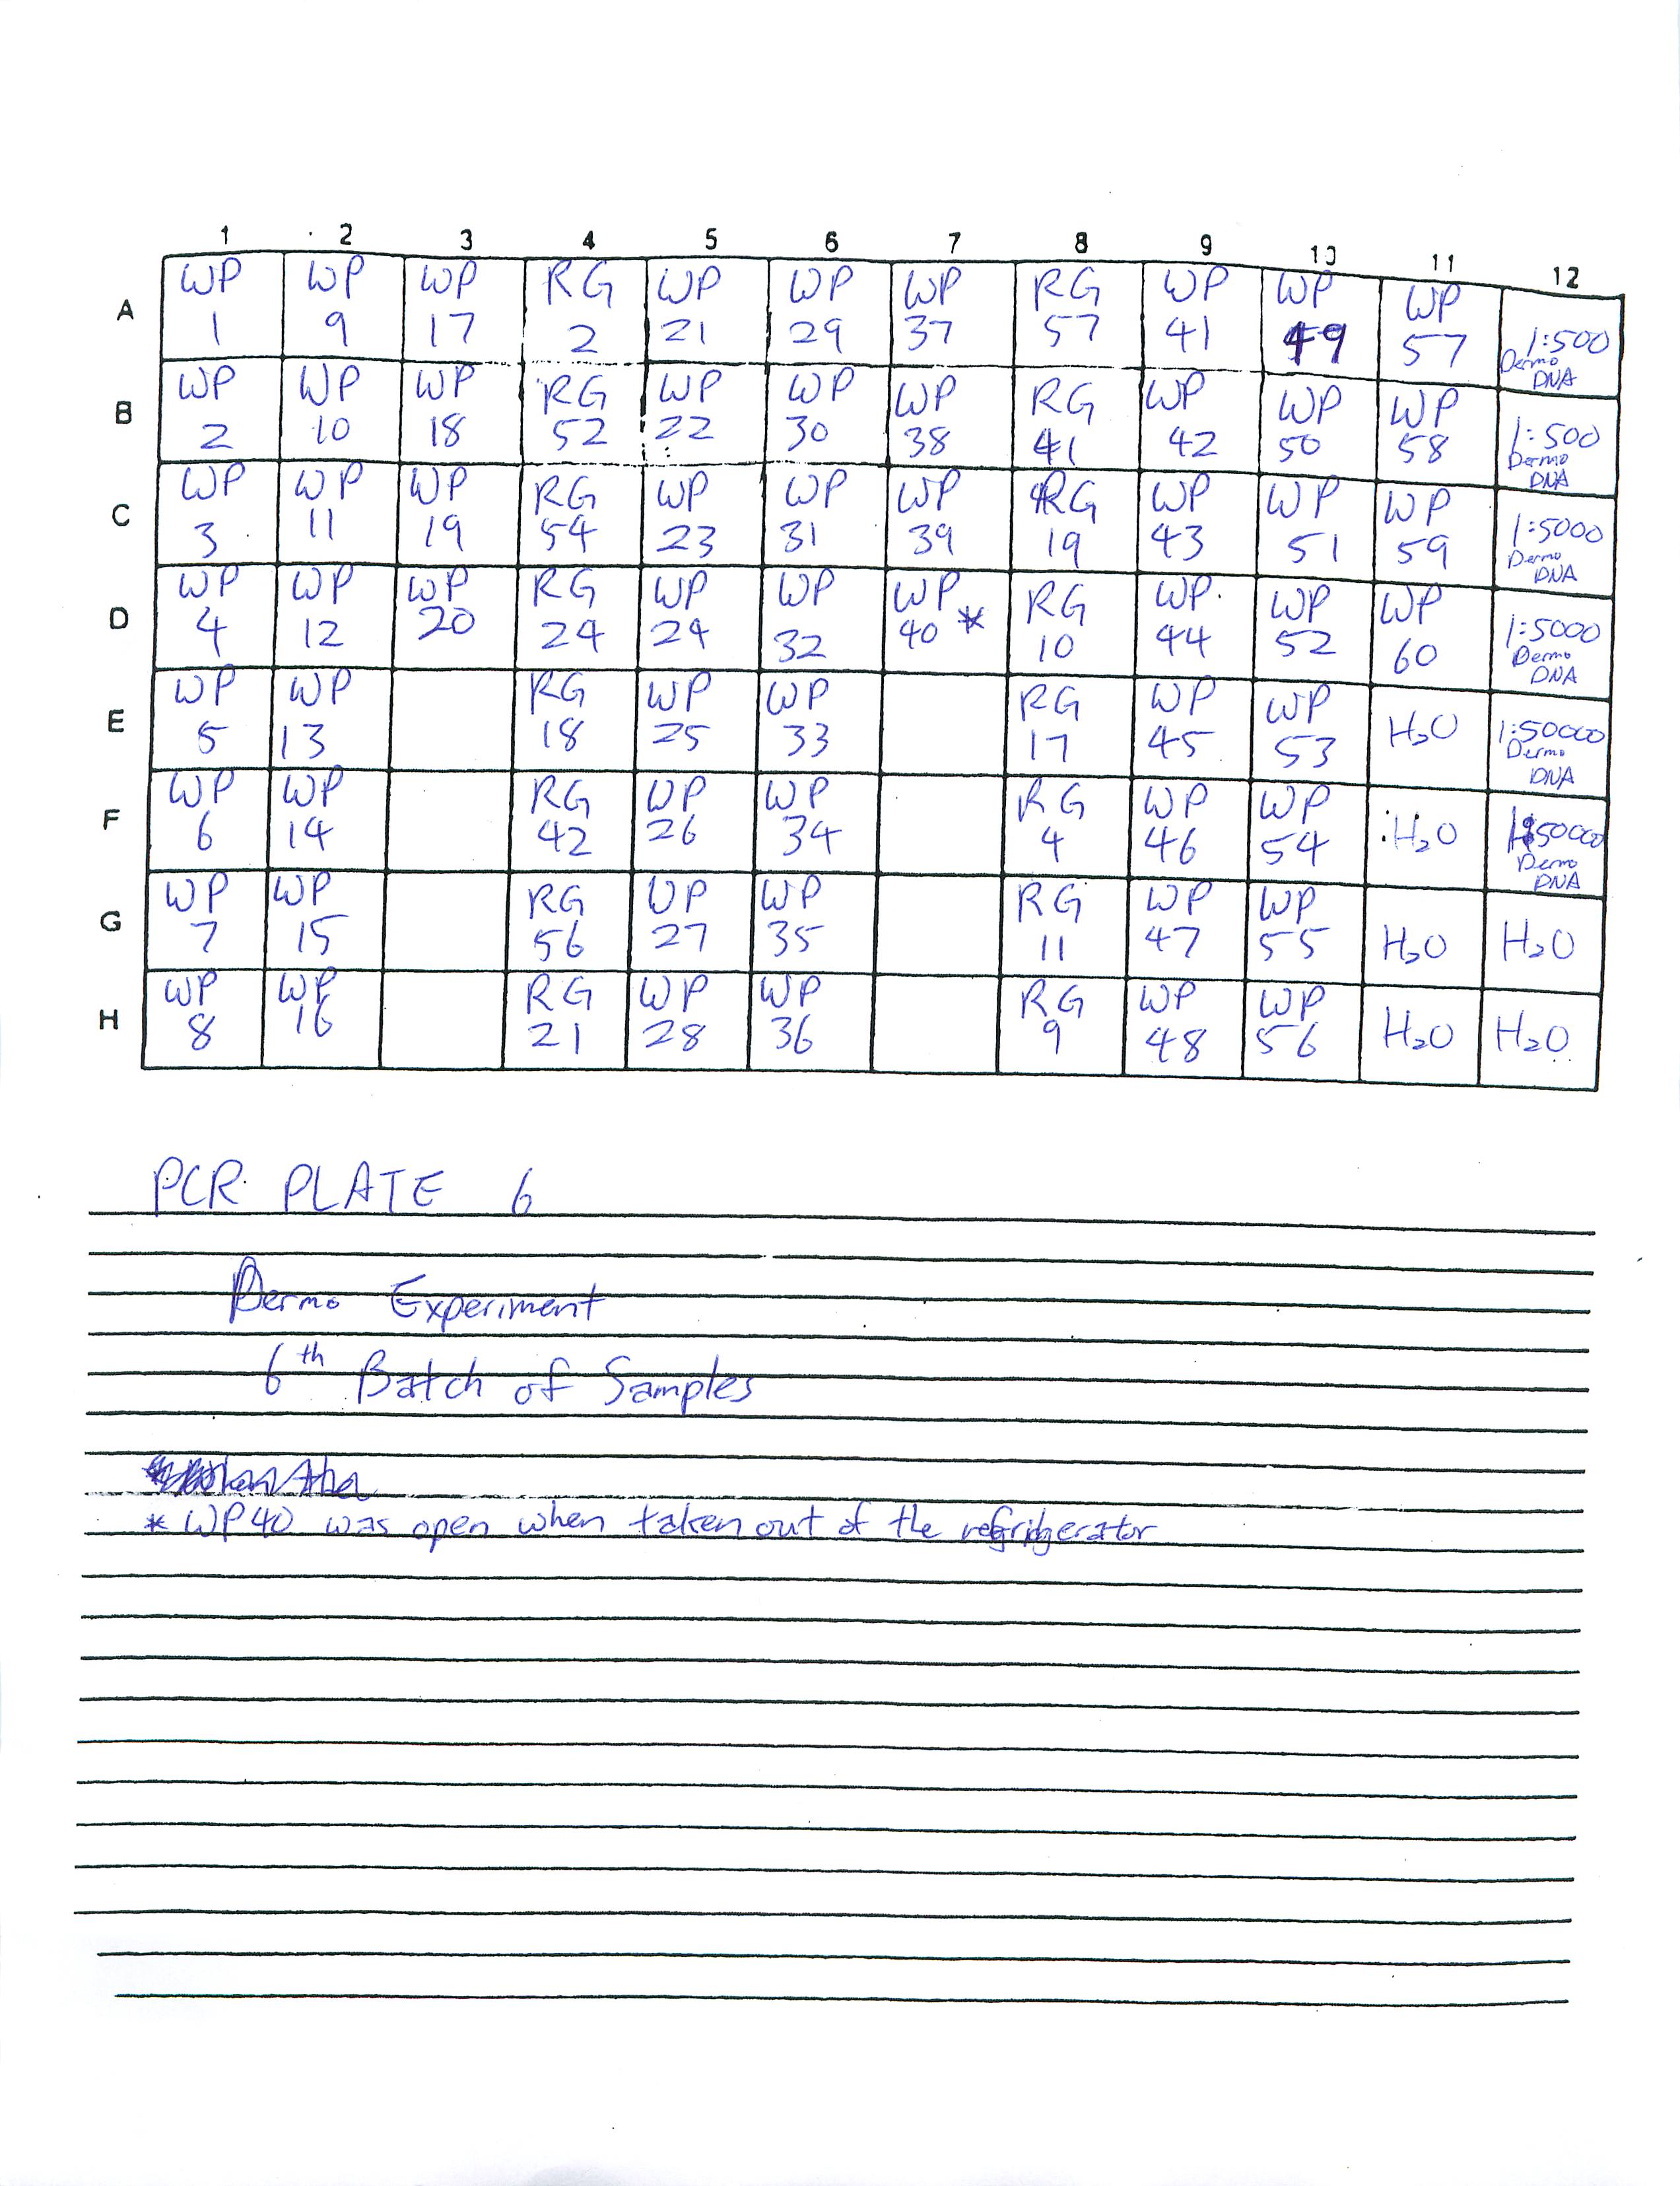 1 2 3 4 5 6 7 8 9 10 11 12
A WP 1 WP 9 WP 17 RG 2 WP 21 WP 29 WP 37 RG 57 WP 41 WP 49 WP 57 1:500 Dermo DNA
B WP 2 WP 10 WP 18 RG 52 WP 22 WP 30 WP 38 RG 41 WP 42 WP 50 WP 58 1:500 Dermo DNA
C WP 3 WP 11 WP 19 RG 54 WP 23 WP 31 WP 39 RG 19 WP 43 WP 51 WP 59 1:5000 Dermo DNA
D WP 4 WP 12 WP 20 RG 24 WP 24 WP 32 WP 40 * RG 10 WP 44 WP 52 WP 60 1:5000 Dermo DNA
E WP 5 WP 13 RG 18 WP 25 WP 33 RG 17 WP 45 WP 53 H₂O 1:50000 Dermo DNA
F WP 6 WP 14 RG 42 WP 26 WP 34 RG 4 WP 46 WP 54 H₂O 1:50000 Dermo DNA
G WP 7 WP 15 RG 56 WP 27 WP 35 RG 11 WP 47 WP 55 H₂O H₂O
H WP 8 WP 16 RG 21 WP 28 WP 36 RG 9 WP 48 WP 56 H₂O H₂O
PCR PLATE 6
Dermo Experiment
6th Batch of Samples
* WP40 was open when taken out of the refridgerator